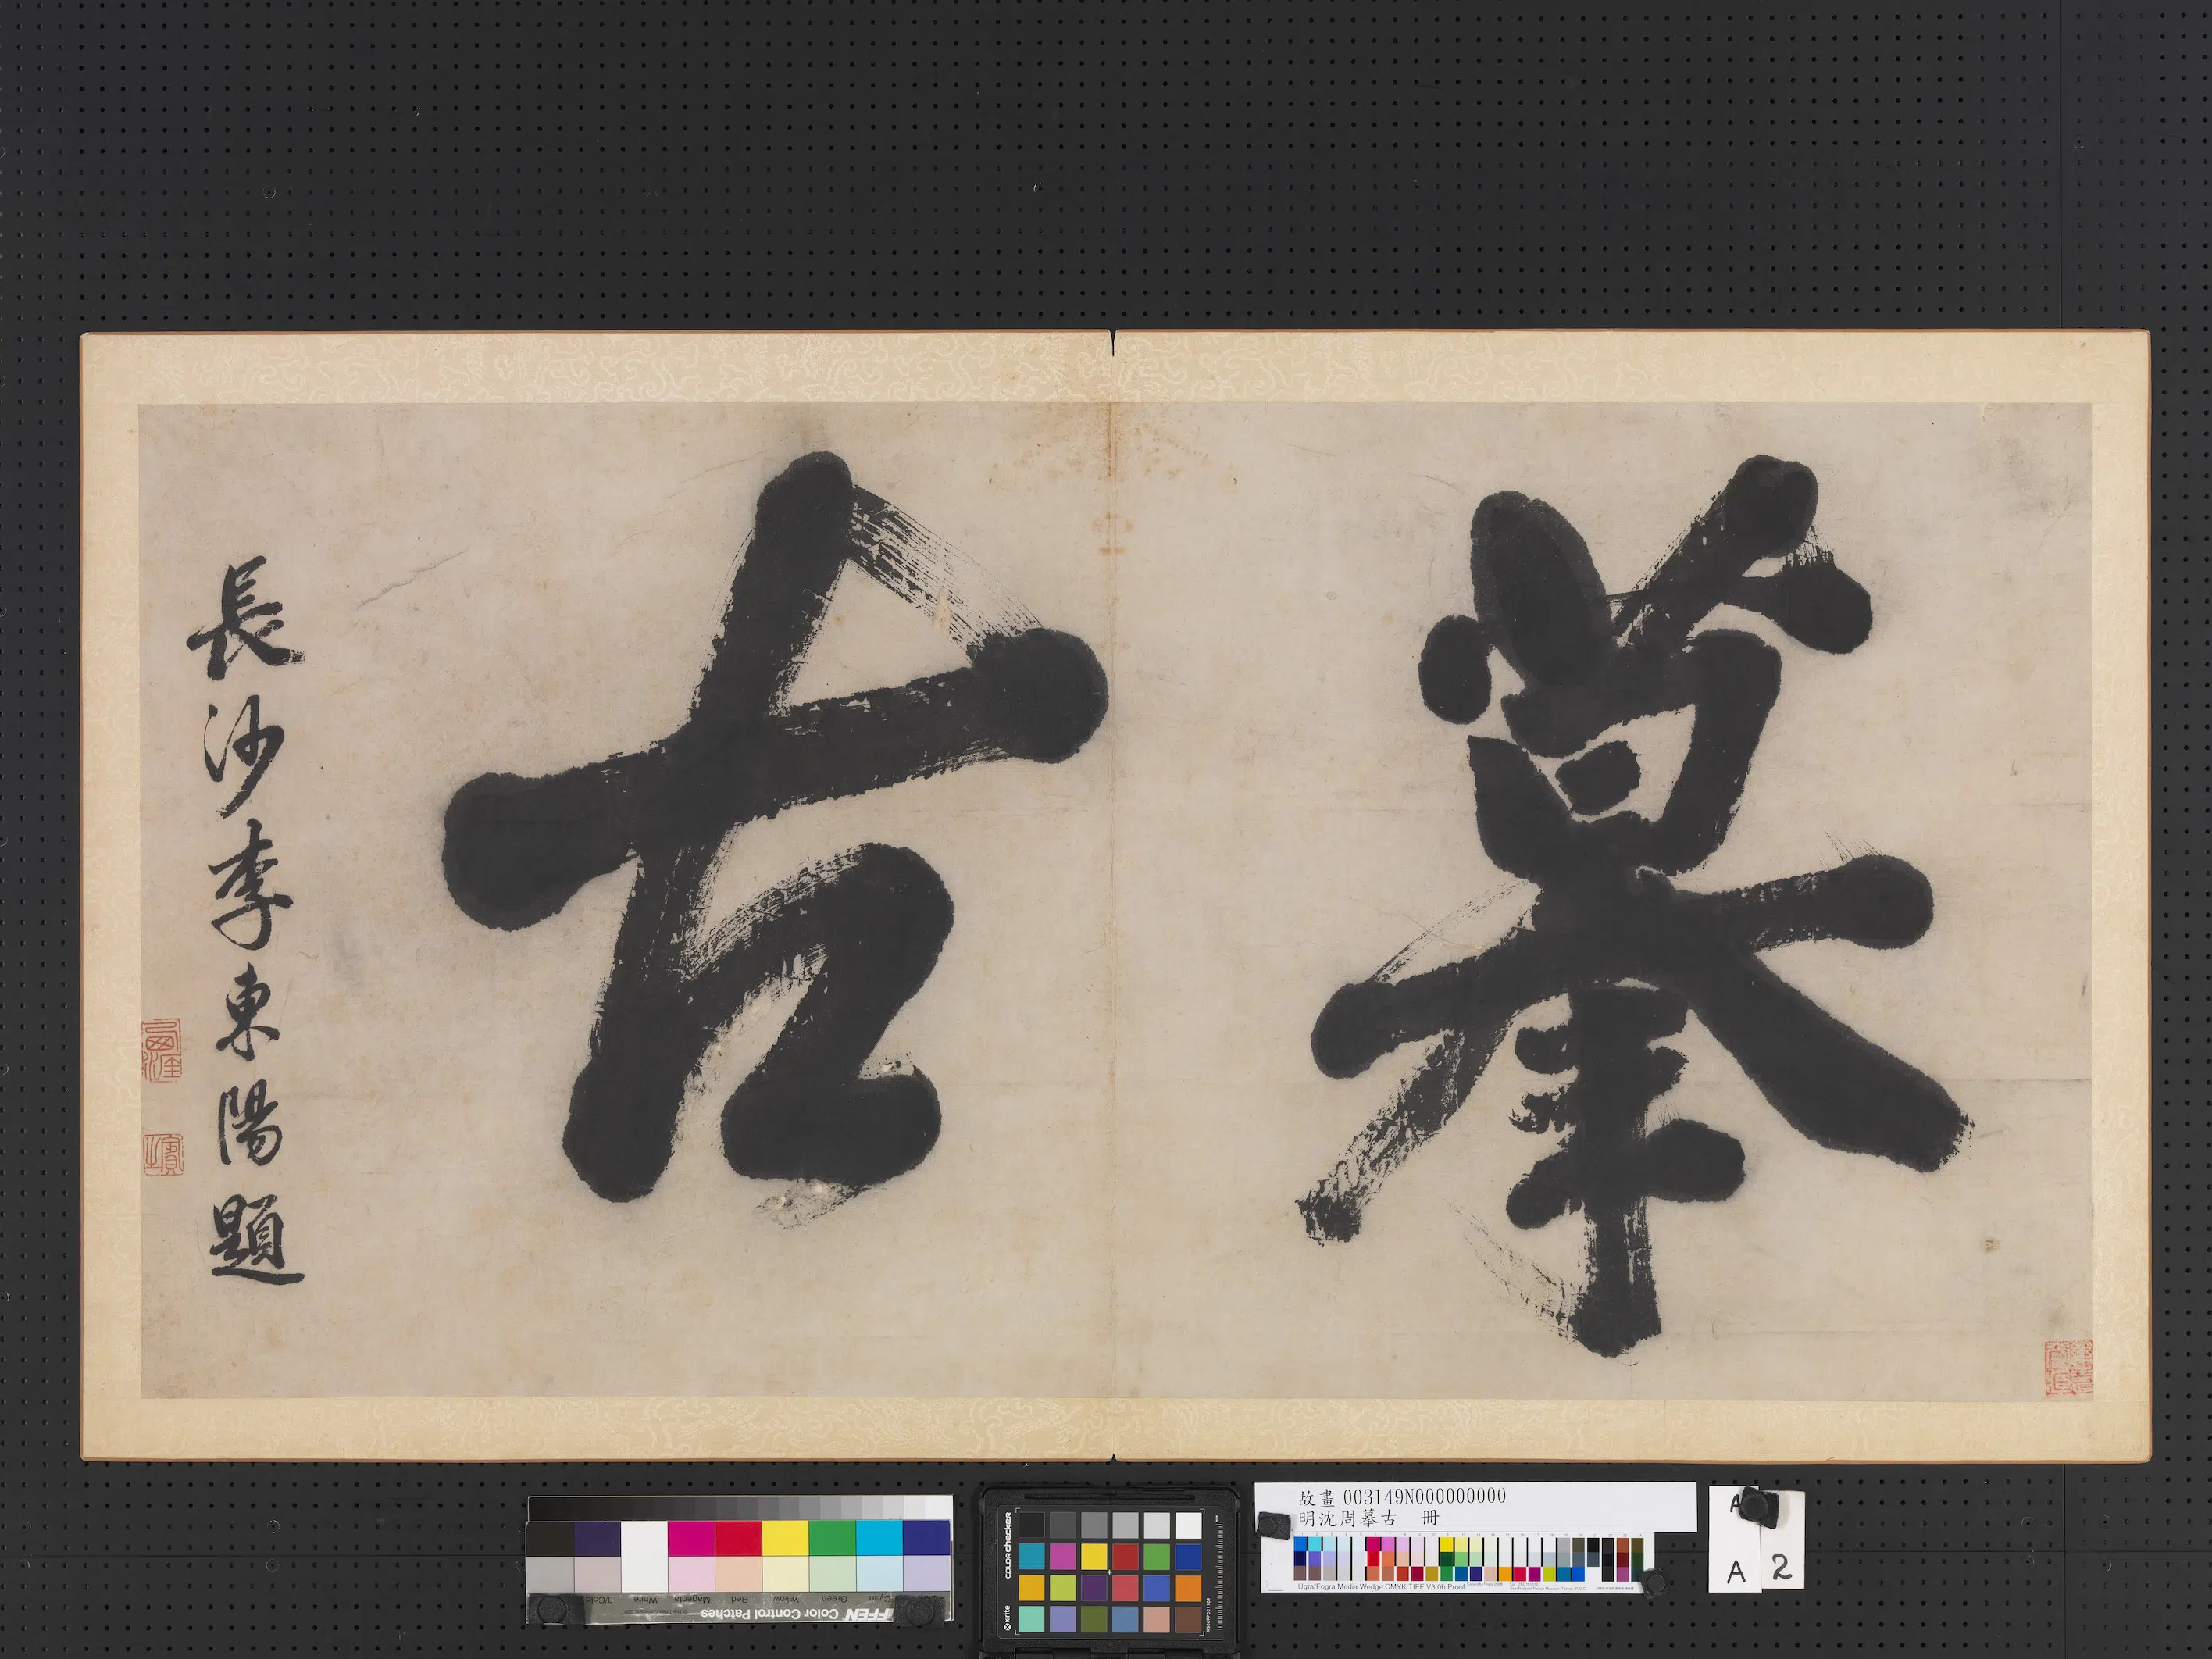 摹古
長沙李東陽題
西涯
賓之
故畫 003149N000000000
明沈周摹古 冊
A
A 2
colorchecker
x-rite
3/Color White Magenta Red Yellow Green Cyan
TIFFEN Color Control Patches
Ugra/Fogra Media Wedge CMYK TIFF V3.0b Proof